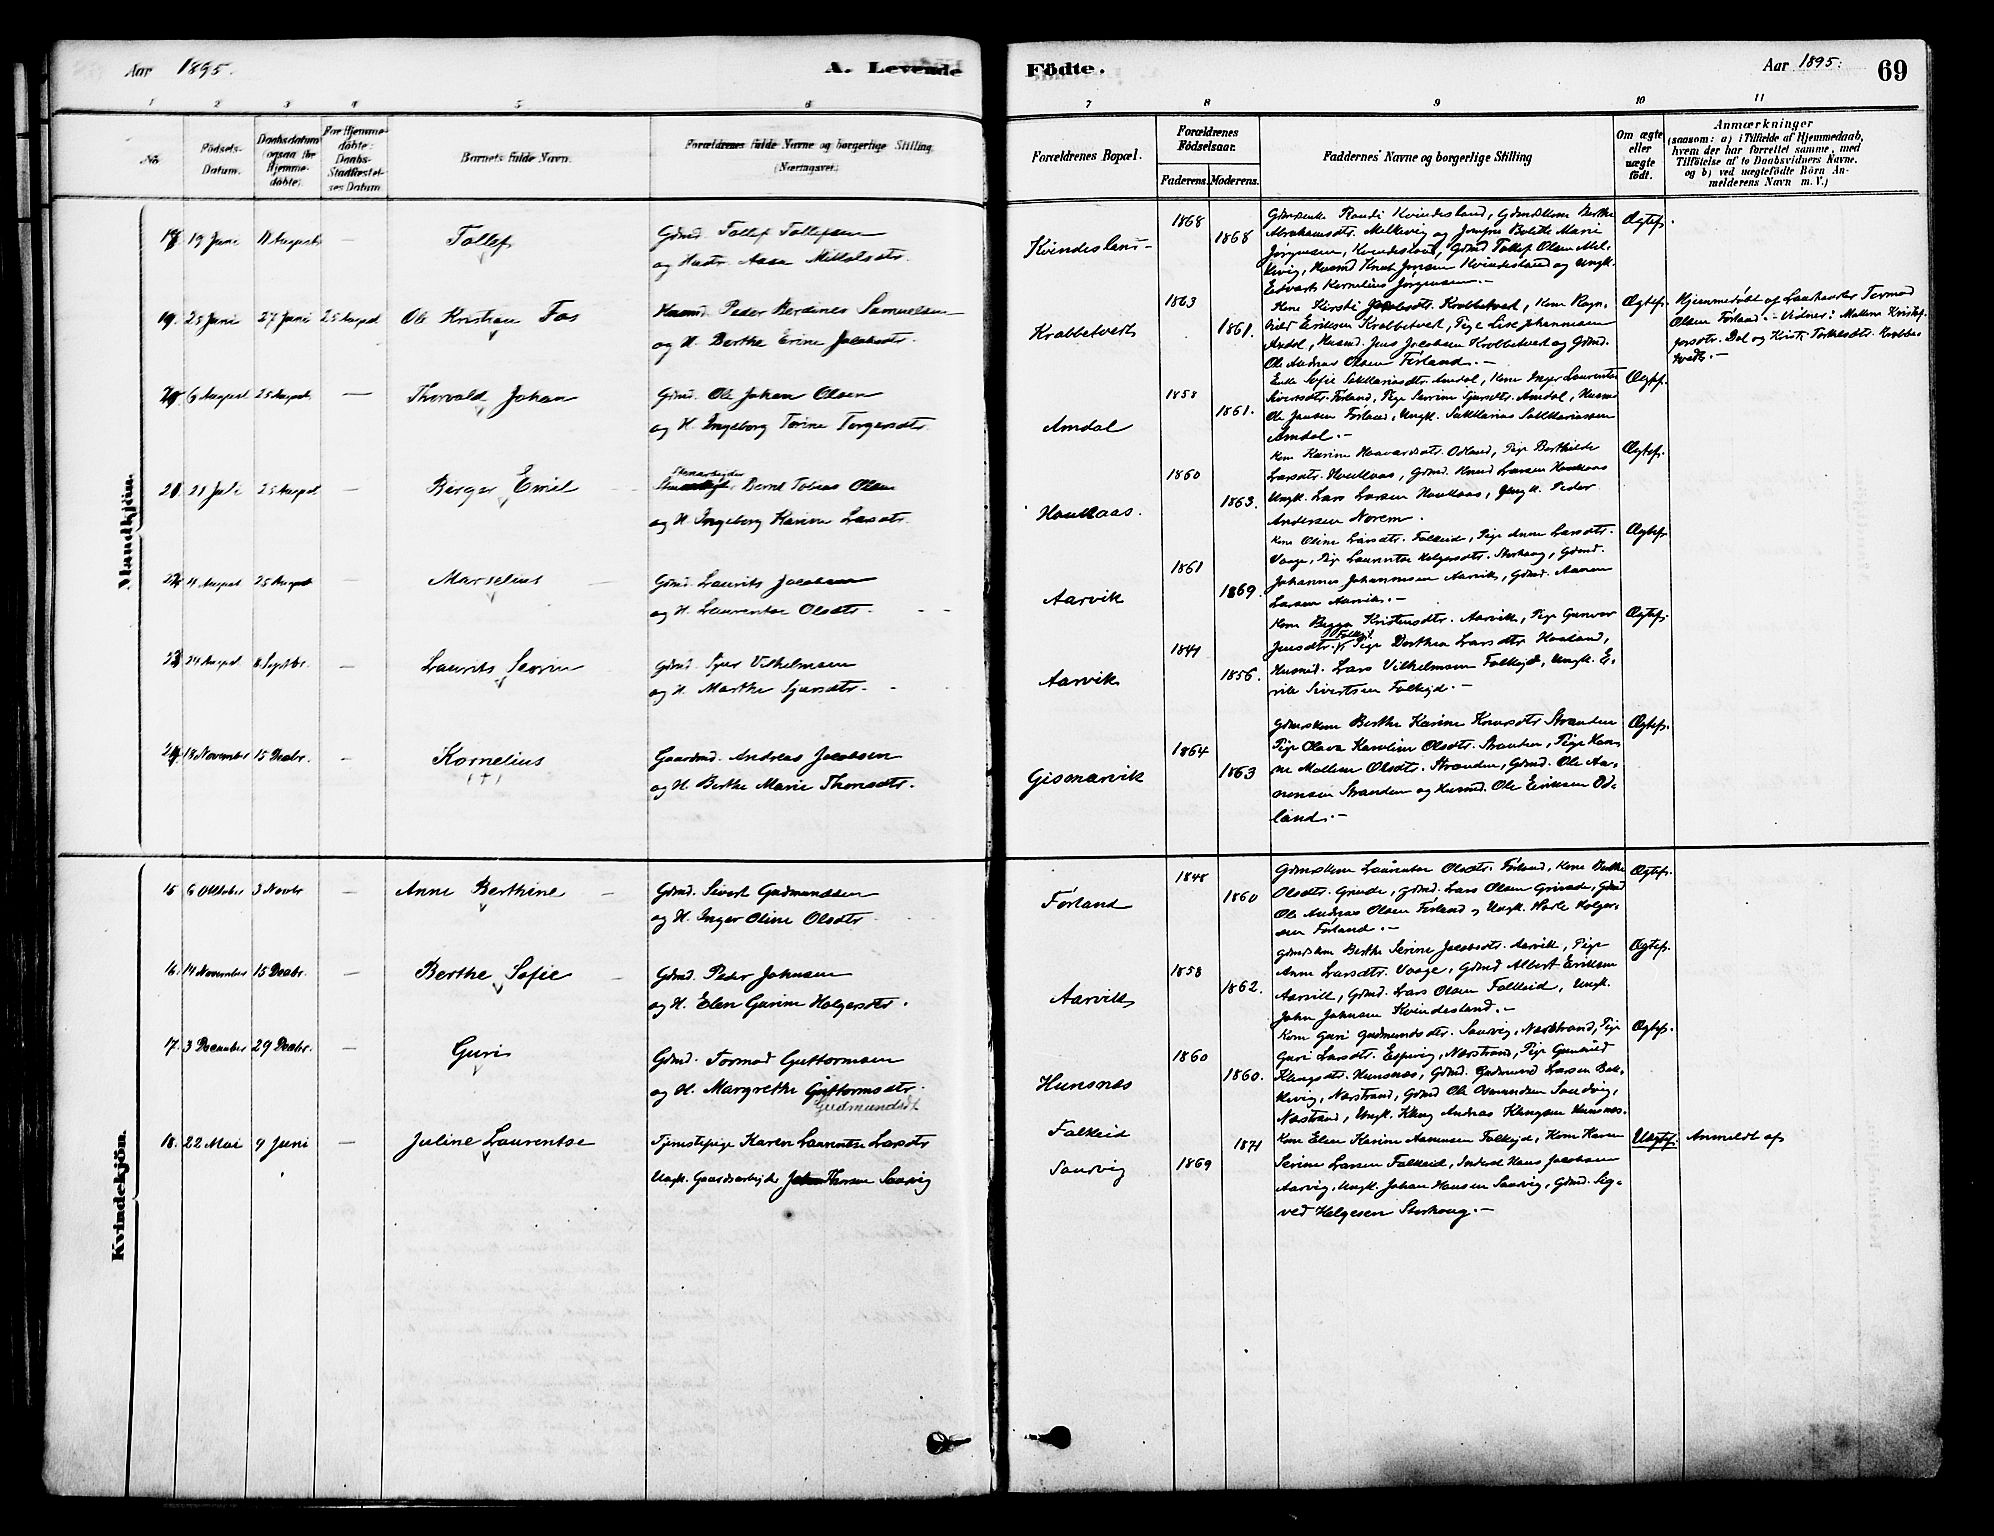 Aar 1895.
A. Levende
Födte.
Aar 1895.
69
1 2 3 4 5 6
7 8 9 10 11
No.
Födsels-Datum.
Daabsdatum (ogsaa for Hjemme-döbte).
For Hjemme-döbte: Daabs-Stadfæstel-ses Datum.
Barnets fulde Navn.
Forældrenes fulde Navne og borgerlige Stilling. (Næringsvei.)
Forældrenes Bopæl.
Forældrenes Födselsaar.
Faderens. Moderens.
Faddernes' Navne og borgerlige Stilling
Om ægte eller uægte födt.
Anmærkninger
(saasom: a) i Tilfælde af Hjemmedaab,
hvem der har forrettet samme, med
Tilföielse af to Daabsvidners Navne,
og b) ved uægtefödte Börn An-
melderens Navn m. V.)
Mandkjön.
18. 19 Juni 18 August — Tollef
Gdmd. Tollef Tollefsen
og Hustr. Aasa Mikkelsdtr.
Kvindesland 1868 1868
Gdmdenke Randi Kvindesland, Gdmdskone Berthe
Abrahamsdtr. Melkevig og Jomfru Bolette Marie
Jørgensen, Kvindesland, Gdmd Tollef Olsen Mel-
kevig, Husmd Knut Jensen Kvindesland og Ungk.
Edvart Kornelius Jørgensen. —
Ægtef.
19. 25 Juni 27 Juni 25 August Ole Kristian Fos
Husmd. Peder Berdines Samuelsen
og H. Berthe Erine Jacobsdtr.
Krabbetveit 1863 1861.
Kone Kirsti Jacobsdtr. Krabbetveit, Kone Ragn-
hild Eriksen Krabbetveit, Pige Lise Johannesen
Amdal, Husmd. Jens Jacobsen Krabbetveit og Gdmd.
Ole Andreas Olsen Førland. —
Ægtef.
Hjemmedøbt af Landhandler Tormod
Olsen Førland. — Vidner: Malene Kristof-
fersdtr. Dal og Kirsti Torkelsdtr. Krabbe-
tveit. —
20. 6 August 25 August — Thorvald Johan
Gdmd. Ole Johan Olsen
og H. Ingeborg Tørine Torgersdtr.
Amdal 1858 1861.
Enke Sofie Sakkariasdtr. Amdal, Kone Inger Laurentse
Siversdtr. Førland, Pige Serine Sjursdtr. Amdal, Husmd
Ole Jensen Førland, Ungk. Sakkarias Sakkariassen
Amdal. —
Ægtef.
21. 21 Juli 25 August — Berger Emil
Stenarbejder Bernt Tobias Olsen
og H. Ingeborg Karine Larsdtr.
Haukaas. 1860 1863.
Kone Karine Haavardsdtr. Odland, Pige Berthilde
Larsdtr. Haukaas, Gdmd. Knud Larsen Haukaas
Ungk. Lars Larsen Haukaas, Ungk. Peder
Andersen Norem.
Ægtef.
22. 4 August 25 August — Marselius
Gdmd. Laurits Jacobsen
og H. Laurentse Olsdtr.
Aarvik 1861 1869.
Kone Oline Larsdtr. Falkeid, Pige Anne Larsdtr.
Vaage, Pige Laurentse Helgesdtr. Storhaug, Gdmd.
Johannes Johannesen Aarvik, Gdmd. Aanen
Larsen Aarvik. —
Ægtef.
23. 24 August 8 Septbr. — Laurits Severin
Gdmd. Sjur Vilhelmsen
og H. Marthe Sjursdtr.
Aarvik 1841 1856.
Kone Begga Kristensdtr. Aarvik, Pige Gunvor
Jensdtr. Falkeid, Pige Dorthea Larsdtr Haaland,
Husmd. Lars Vilhelmsen Falkejd, Ungk. E-
rik Sivertsen Falkejd. —
Ægtef.
24. 18 November 15 Decbr. — Kornelius
(+)
Gaardmd. Andreas Jacobsen
og H. Berthe Marie Thoresdtr.
Gismarvik 1864 1863
Gdmdskone Berthe Karine Knudsdtr Stranden
Pige Olava Karoline Olsdtr. Stranden, Pige Han-
ne Malene Olsdtr. Stranden, Gdmd. Ole Aa-
nensen Stranden og Husmd. Ole Eriksen Od-
land. —
Ægtef.
Kvindekjön.
15. 6 Oktober 3 Novbr — Anne Berthine
Gdmd. Sivert Gudmundsen
og H. Inger Oline Olsdtr
Førland 1848 1860
Gdmdskone Laurentse Olsdtr. Førland, Kone Berthe
Olsdtr. Grinde, Gdmd. Lars Olsen Grinde, Gdmd
Ole Andreas Olsen Førland og Ungk. Helge Helge-
sen Førland. —
Ægtef.
16. 14 November 15 Decbr. — Berthe Sofie
Gdmd. Peder Johnsen
og H. Elen Gurine Holgersdtr.
Aarvik 1858 1862.
Gdmdskone Berthe Serine Jacobsdtr. Aarvik, Pige
Anne Larsdtr. Vaage, Gdmd Albert Eriksen
Aarvik, Gdmd. Lars Olsen Falkeid, Ungk.
John Johnsen Kvindesland. —
Ægtef.
17. 3 December 29 Decbr. — Guri
Gdmd. Tormod Guttormsen
og H. Margrethe Guttormsdtr.
Gudmundsdt
Hunsnæs 1860 1860.
Kone Guri Gudmundsdtr. Sandvig, Nærstrand, Pige
Guri Larsdtr. Espevig, Nærstrand, Pige Gunhild
Klungsdtr. Hunsnæs, Gdmd. Gudmund Larsen Bak-
kevig, Nærstrand, Gdmd Ole Osmundsen Sandvig,
Nærstrand, Ungk. Klung Andreas Klungsen Hunsnæs.
Ægtef.
18. 22 Mai 9 Juni — Juline Laurentse
Tjenestepige Karen Laurentse Larsdtr
Ungk. Gaardsarbejder Johan Thorsen Sandvig
Falkeid 1871
Sandvig 1869
Kone Elen Karine Aanensen Falkejd, Kone Karen
Serine Larsen Falkeid, Inderst Hans Jacobsen
Aarvig, Ungk. Johan Hansen Sandvig, Gdmd. Sig-
ved Helgesen Storhaug. —
Uægtef.
Anmeldt af